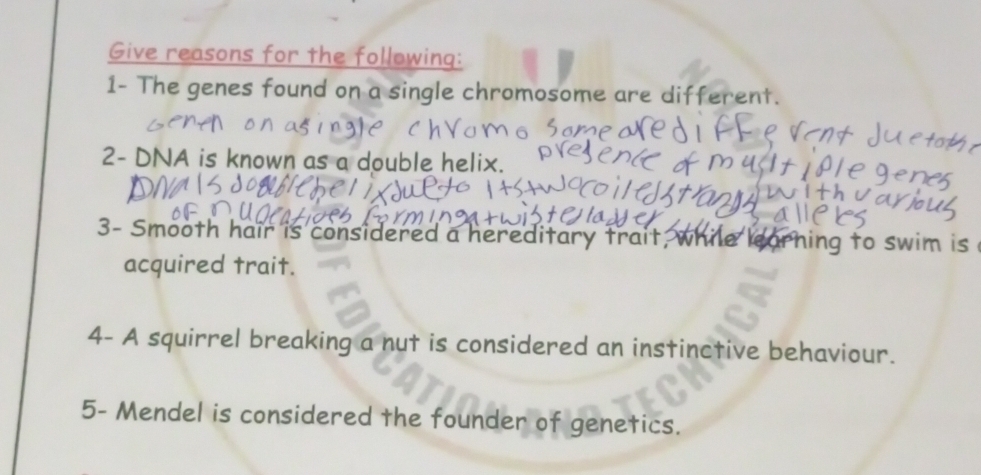 Give reasons for the following:
1- The genes found on a single chromosome are different.
on a single chromo some are different due to the
presence of multiple genes
2- DNA is known as a double helix.
DNA is double helix due to its two coiled strands with various
of forming a twisted ladder alleles
3- Smooth hair is considered a hereditary trait, while learning to swim is
acquired trait.
4- A squirrel breaking a nut is considered an instinctive behaviour.
5- Mendel is considered the founder of genetics.
OF EDUCATION AND TECHNICAL